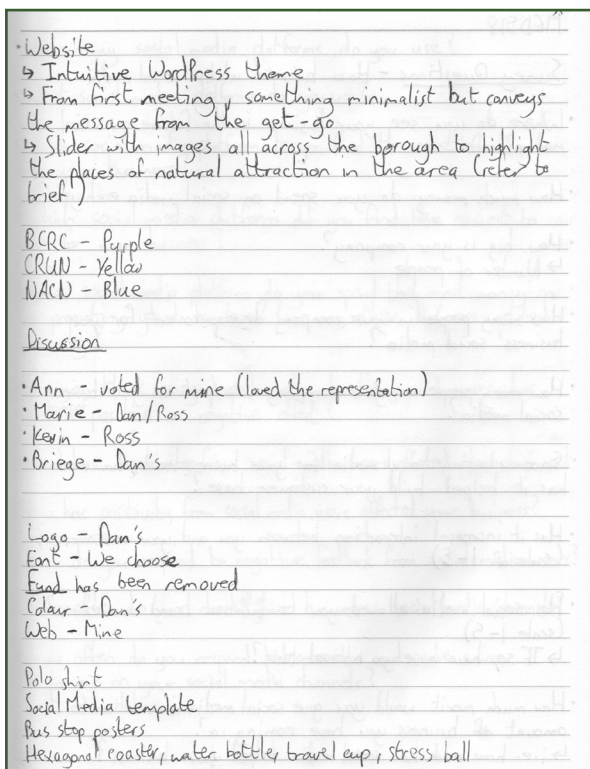 · Website
↳ Intuitive WordPress theme
↳ From first meeting, something minimalist but conveys
the message from the get-go
↳ Slider with images all across the borough to highlight
the places of natural attraction in the area (refer to
brief)
BCRC - Purple
CRUN - Yellow
NACN - Blue
Discussion
· Ann - voted for mine (loved the representation)
· Marie - Dan/Ross
· Kevin - Ross
· Briege - Dan's
Logo - Dan's
Font - We choose
Fund has been removed
Colour - Dan's
Web - Mine
Polo shirt
Social Media template
Bus stop posters
Hexagonal coaster, water bottle, travel cup, stress ball